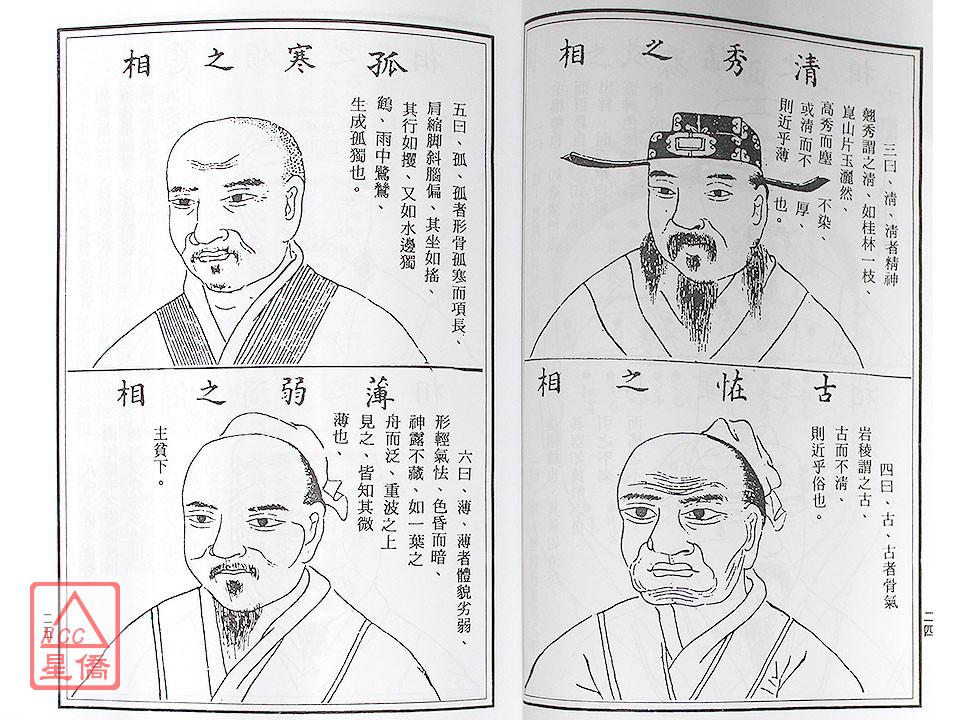 清秀之相
三曰、清、清者精神
翹秀謂之清、如桂林一枝、
崑山片玉灑然、
高秀而塵不染、
或清而不厚、
則近乎薄也。
古恠之相
四曰、古、古者骨氣
岩稜謂之古、
古而不清、
則近乎俗也。
二四
孤寒之相
五曰、孤、孤者形骨孤寒而項長、
肩縮脚斜腦偏、其坐如搖、
其行如攫、又如水邊獨
鶴、雨中鷺鷥、
生成孤獨也。
薄弱之相
六曰、薄、薄者體貌劣弱、
形輕氣怯、色昏而暗、
神露不藏、如一葉之
舟而泛、重波之上
見之、皆知其微
薄也、
主貧下。
二五
NCC
星僑